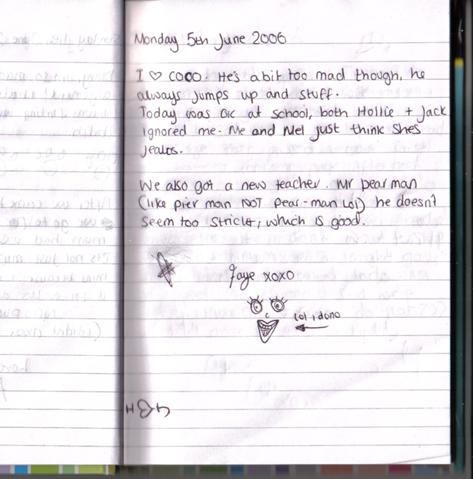 Monday 5th June 2006
I ♡ COCO. He's a bit too mad though, he
always jumps up and stuff.
Today was ok at school, both Hollie + Jack
ignored me. Me and Mel just think shes
jealos.
We also got a new teacher. Mr pearman
(like pier man NOT pear-man Lol) he doesn't
seem too strict, which is good.
Jaye xoxo
lol i dono